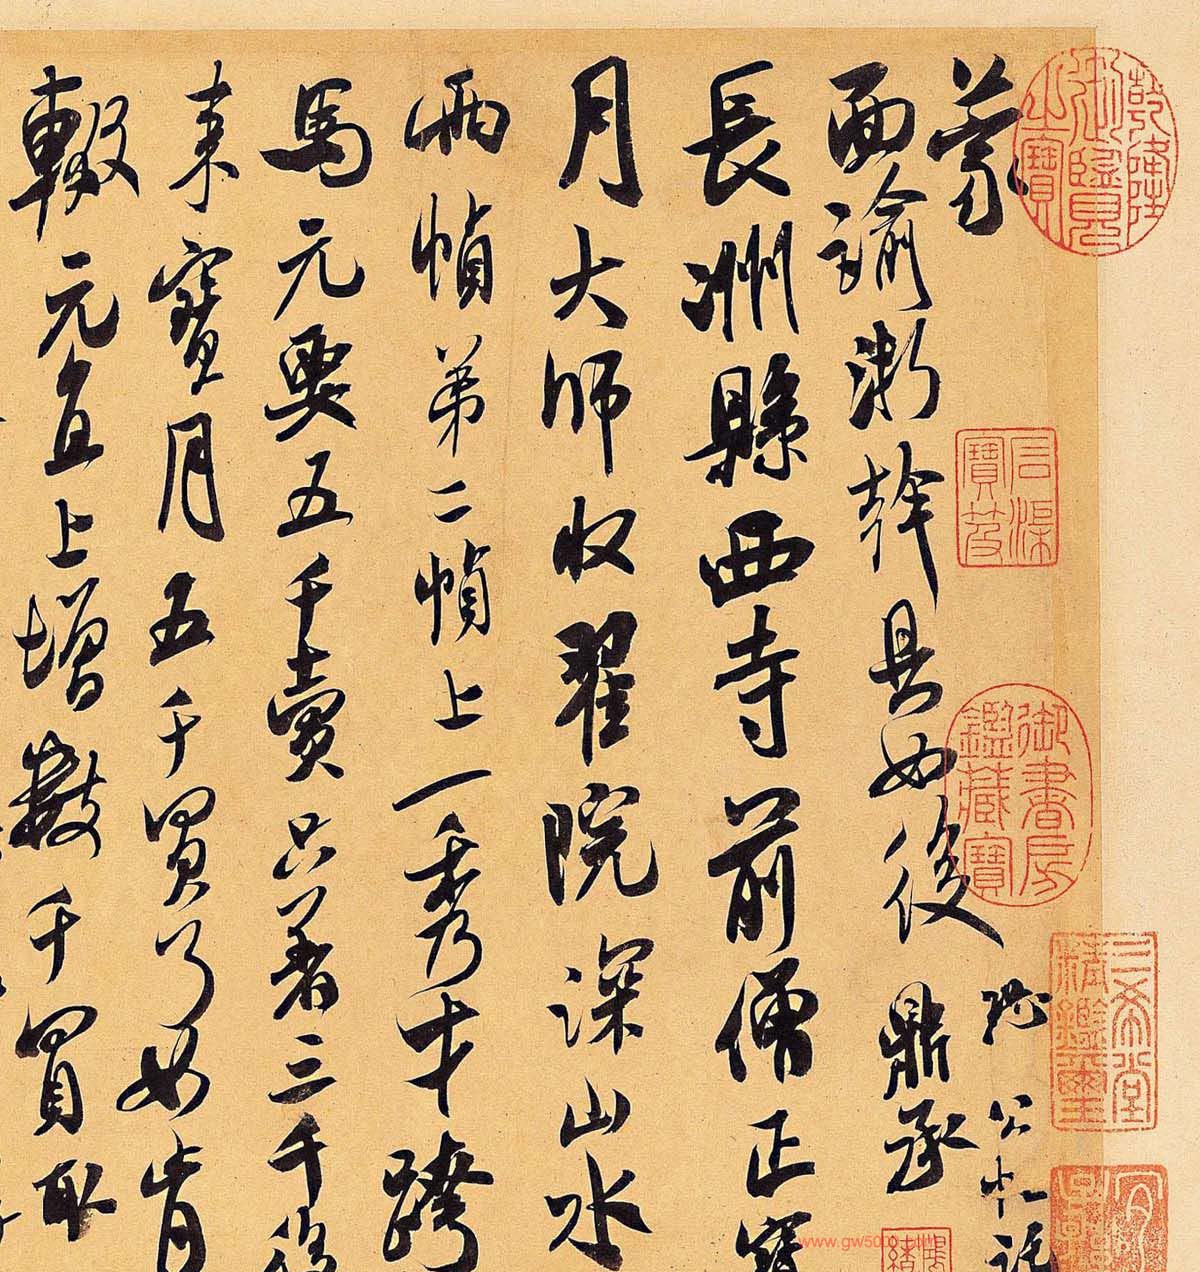 蒙
面諭浙幹具如後
鼎承
長洲縣西寺前僧正寶
月大師收翟院深山水
兩幀第二幀上一秀才跨
馬元要五千賣只著三千後
來寶月五千買了如肯
輟元直上增數千買取
乾隆御覽之寶
石渠寶笈
御書房鑑藏寶
三希堂精鑑璽
www.gw5000.com